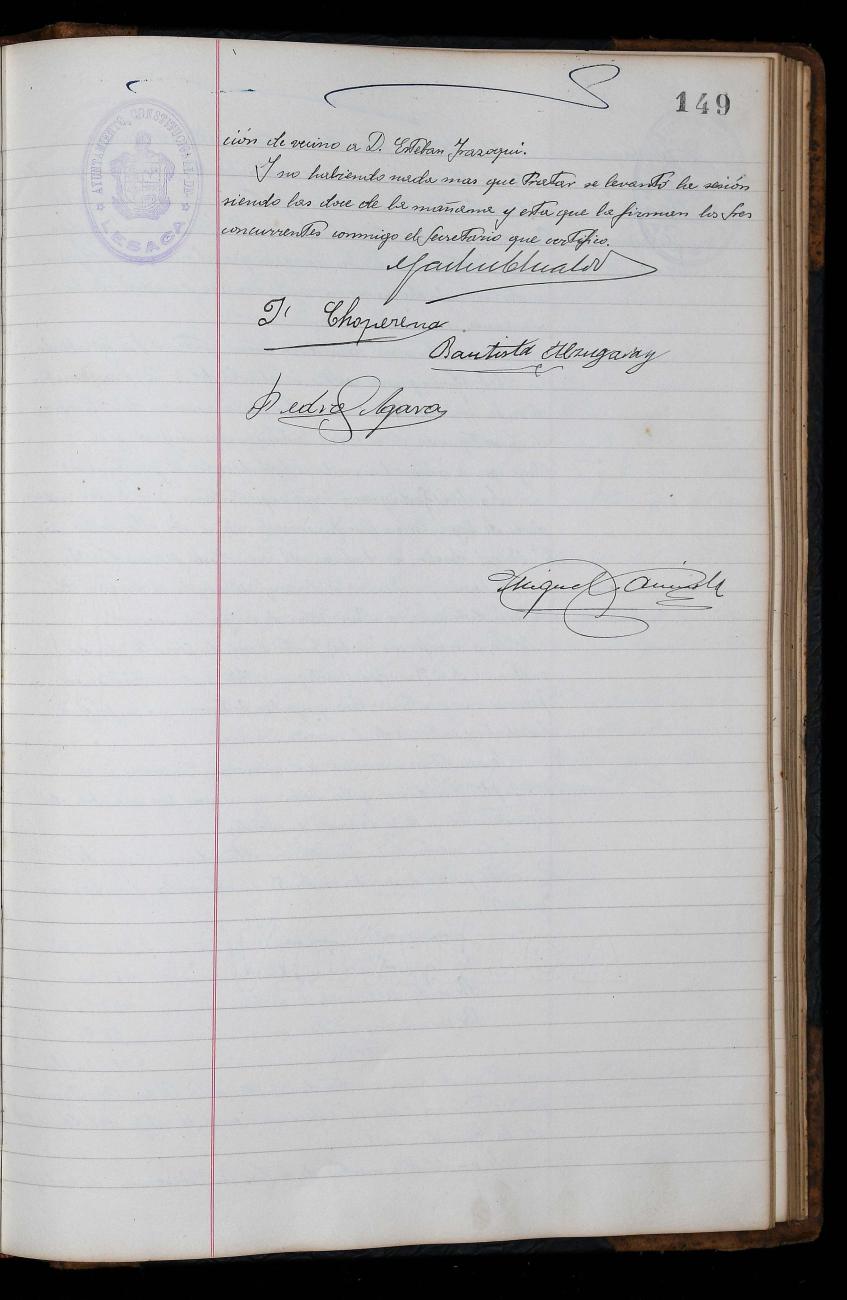 149
AYUNTAMIENTO CONSTITUCIONAL DE
LESACA
ción de vecino a D. Esteban Irazoqui.
Y no habiendo nada mas que tratar se levantó la sesión
siendo las doce de la mañana y esta que la firman los Sres
concurrentes conmigo el Secretario que certifico.
Choperena
Bautista
Pedro
Miguel